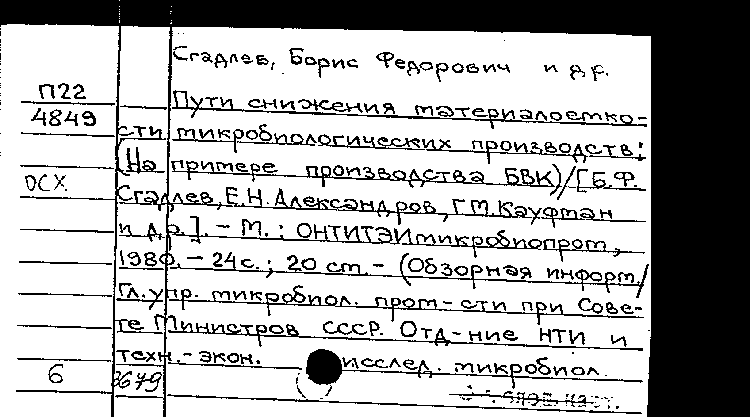 Сгадлев, Борис Федорович и др.
П22
4849
Пути снижения материалоемко-
сти микробиологических производств:
(На примере производства БВК)/[Б.Ф.
ОСХ
Сгадлев, Е.Н. Александров, Г.М. Кауфман
и др.]. - М.: ОНТИТЭИмикробиопром,
1980. - 24с.; 20 см. - (Обзорная информ./
Гл. упр. микробиол. пром-сти при Сове-
те Министров СССР. Отд-ние НТИ и
техн.-экон. исслед. микробиол.
6
3679